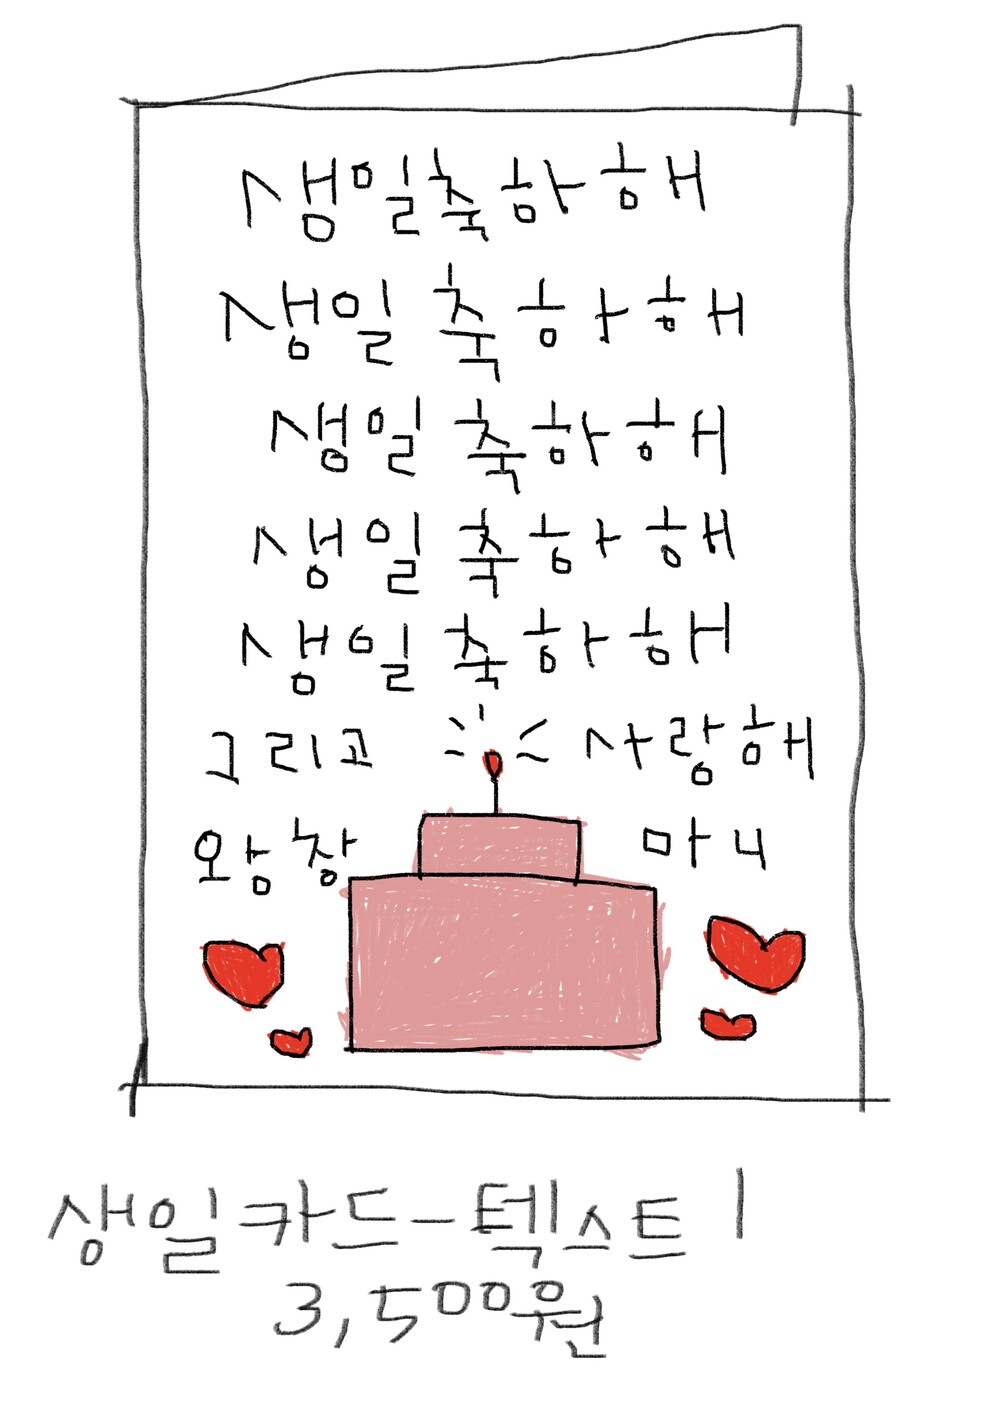 생일축하해
생일 축하해
생일 축하해
생일 축하해
생일 축하해
그리고 사랑해
왕창 마니
생일카드-텍스트 1
3,500원